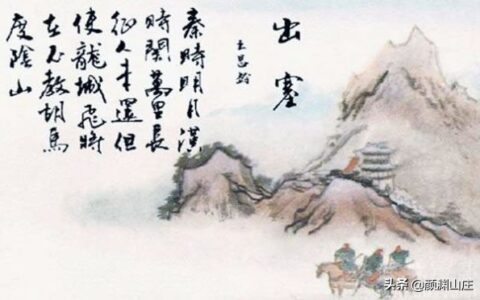 出塞
王昌齡
秦時明月漢
時關萬里長
征人未還但
使龍城飛將
在不教胡馬
度陰山
头条 @颜渊山庄